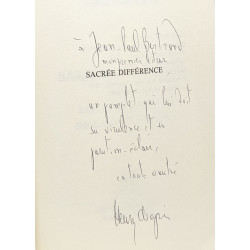 à Jean-Paul Bertrand
SACRÉE DIFFÉRENCE
un pamphlet qui lui doit
sa virulence et
en toute amitié
Henry Chapier